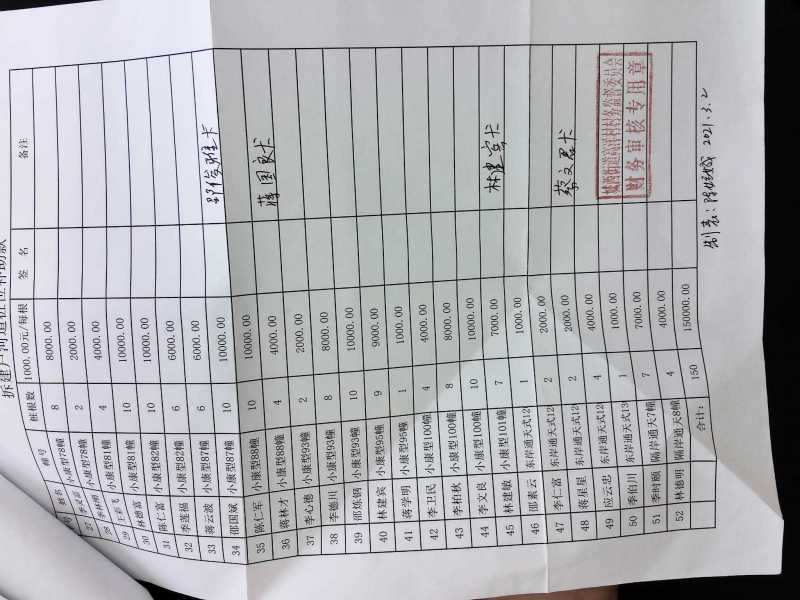 拆建户河道桩位补助款
号 姓名 幢号 桩根数 1000.00元/每根 签名 备注
27 季文富 小康型78幢 8 8000.00
28 小康型78幢 2 2000.00
29 王彩飞 小康型81幢 4 4000.00
30 林德富 小康型81幢 10 10000.00
31 陈仁富 小康型82幢 10 10000.00
32 季莲福 小康型82幢 6 6000.00
33 蒋云波 小康型87幢 6 6000.00
34 邵国斌 小康型87幢 10 10000.00 邵俊雅卡
35 陈仁军 小康型88幢 10 10000.00
36 蒋林才 小康型88幢 4 4000.00 蒋国良卡
37 李心德 小康型93幢 2 2000.00
38 李德川 小康型93幢 8 8000.00
39 邵炼钢 小康型93幢 10 10000.00
40 林建宾 小康型95幢 9 9000.00
41 蒋学明 小康型95幢 1 1000.00
42 李卫民 小康型100幢 4 4000.00
43 李柏秋 小康型100幢 8 8000.00
44 李文良 小康型100幢 10 10000.00
45 林建敏 小康型101幢 7 7000.00 林建宾卡
46 邵素云 东岸通天式12 1 1000.00
47 李仁富 东岸通天式12 2 2000.00
48 蒋星星 东岸通天式12 2 2000.00 蔡文君卡
49 应云忠 东岸通天式12 4 4000.00
50 季伯川 东岸通天式13 1 1000.00
51 季时颐 隔岸通天7幢 7 7000.00
52 林德明 隔岸通天8幢 4 4000.00
合计： 150 150000.00
财务审核专用章
制表：2021.3.2